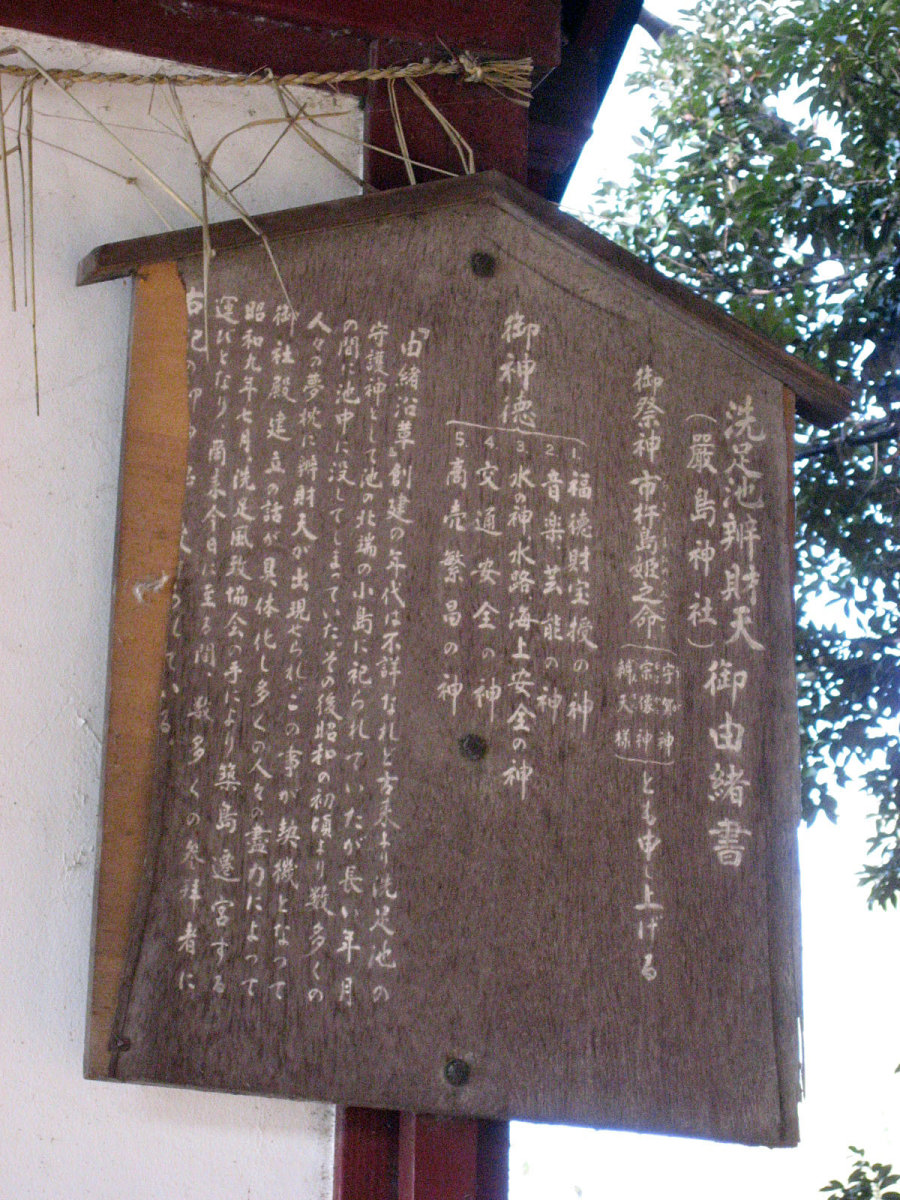 洗足池辨財天御由緒書
（嚴島神社）
御祭神市杵島姫之命
宗像神
辨天様
とも申し上げる
御神徳
1. 福徳財宝授の神
2. 音楽芸能の神
3. 水の神、水路海上安全の神
4. 交通安全の神
5. 商売繁昌の神
『由緒沿革』創建の年代は不詳なれど古来より洗足池の
守護神として池の北端の小島に祀られていたが長い年月
の間に池中に没してしまっていた。その後昭和の初頃より数多くの
人々の夢枕に辨財天が出現せられ、この事が契機となって
御社殿建立の話が具体化し多くの人々の盡力によって
昭和九年七月洗足風致協会の手により築島遷宮する
運びとなり、爾来今日に至る間、数多くの参拝者に
右記の
ている。